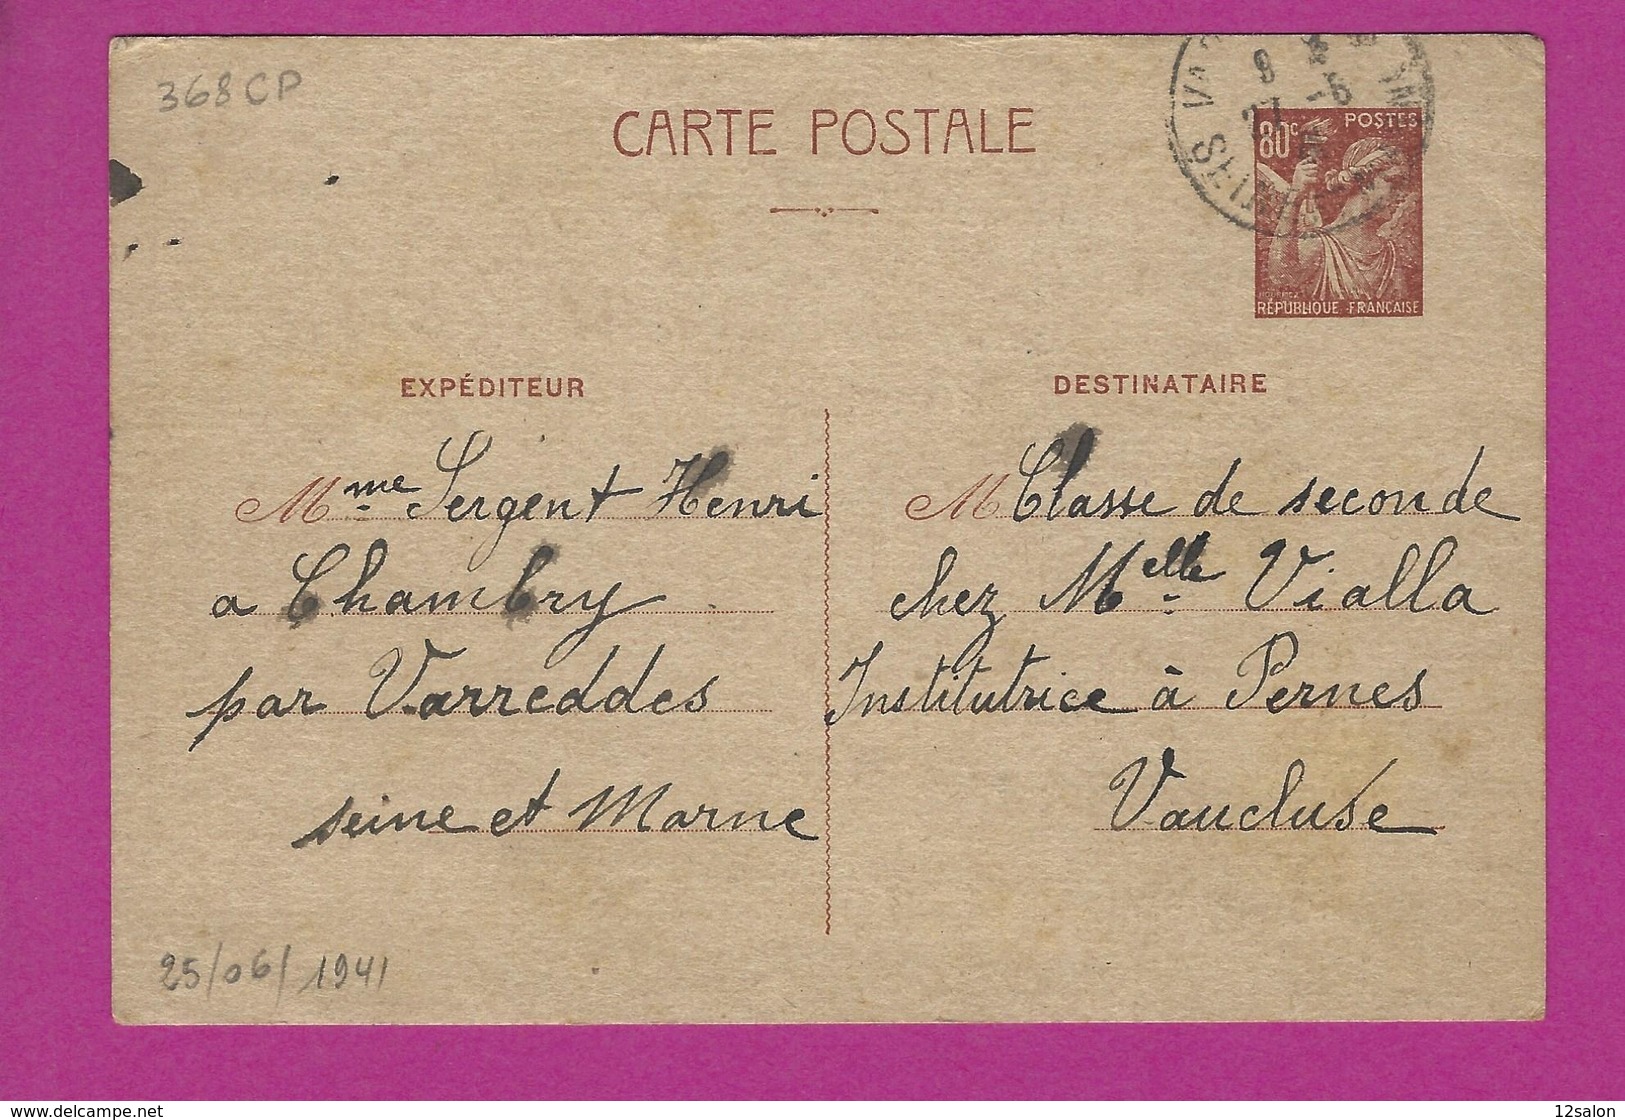 368 CP
CARTE POSTALE
80c POSTES
RÉPUBLIQUE FRANÇAISE
EXPÉDITEUR
Mme Sergent Henri
a Chambry
par Varreddes
seine et Marne
DESTINATAIRE
M Classe de seconde
chez Melle Vialla
Institutrice à Pernes
Vaucluse
25/06/1941
www.delcampe.net
12salon